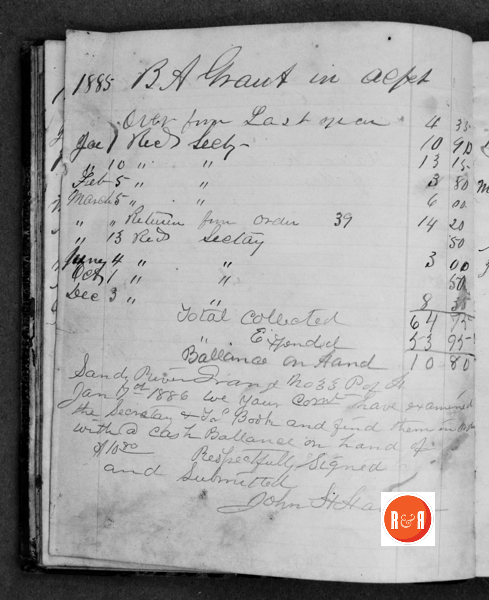 1885 B A Grant in acpt
Over from Last year 4 35
Jan 1 Recd Secty 10 90
" 10 " " 13 15
Feb 5 " " 3 80
March 5 " " 6 00
" " Return from order 39 14 20
" 13 Recd Sectay 50
June 4 " " 3 00
Oct 1 " " 50
Dec 3 " " 8 35
Total Collected 64 75
" Expended 53 95
Ballance on Hand 10 80
Sandy River Grang No 33 P of H
Jan 7th 1886 We Your Comt have examined
the Secretary & Book and find them
with a Cash Ballance on hand of
$10 80 Respectfully Signed
and Submitted
John H
R&R